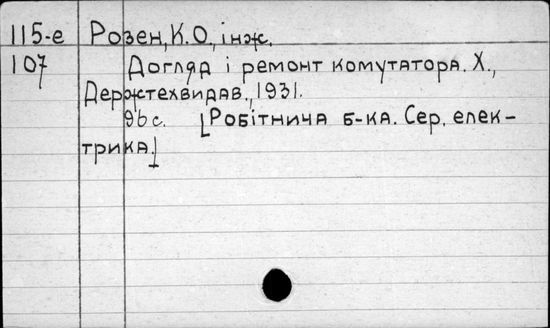 115-е Розен, К.О., інж.
107 Догляд і ремонт комутатора. Х.,
Держтехвидав., 1931.
96 с. [Робітнича б-ка. Сер. елек-
трика.]